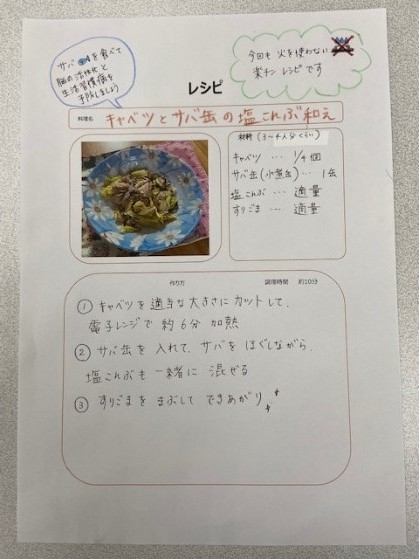 サバ缶を食べて
脳の活性化と
生活習慣病を
予防しましょう
今回も火を使わない
楽チンレシピです
レシピ
料理名 キャベツとサバ缶の塩こんぶ和え
材料(3〜4人分くらい)
キャベツ … 1/4個
サバ缶(水煮缶) … 1缶
塩こんぶ … 適量
すりごま … 適量
作り方 調理時間 約10分
① キャベツを適当な大きさにカットして、
電子レンジで約6分加熱
② サバ缶を入れて、サバをほぐしながら、
塩こんぶも一緒に混ぜる
③ すりごまをまぶしてできあがり